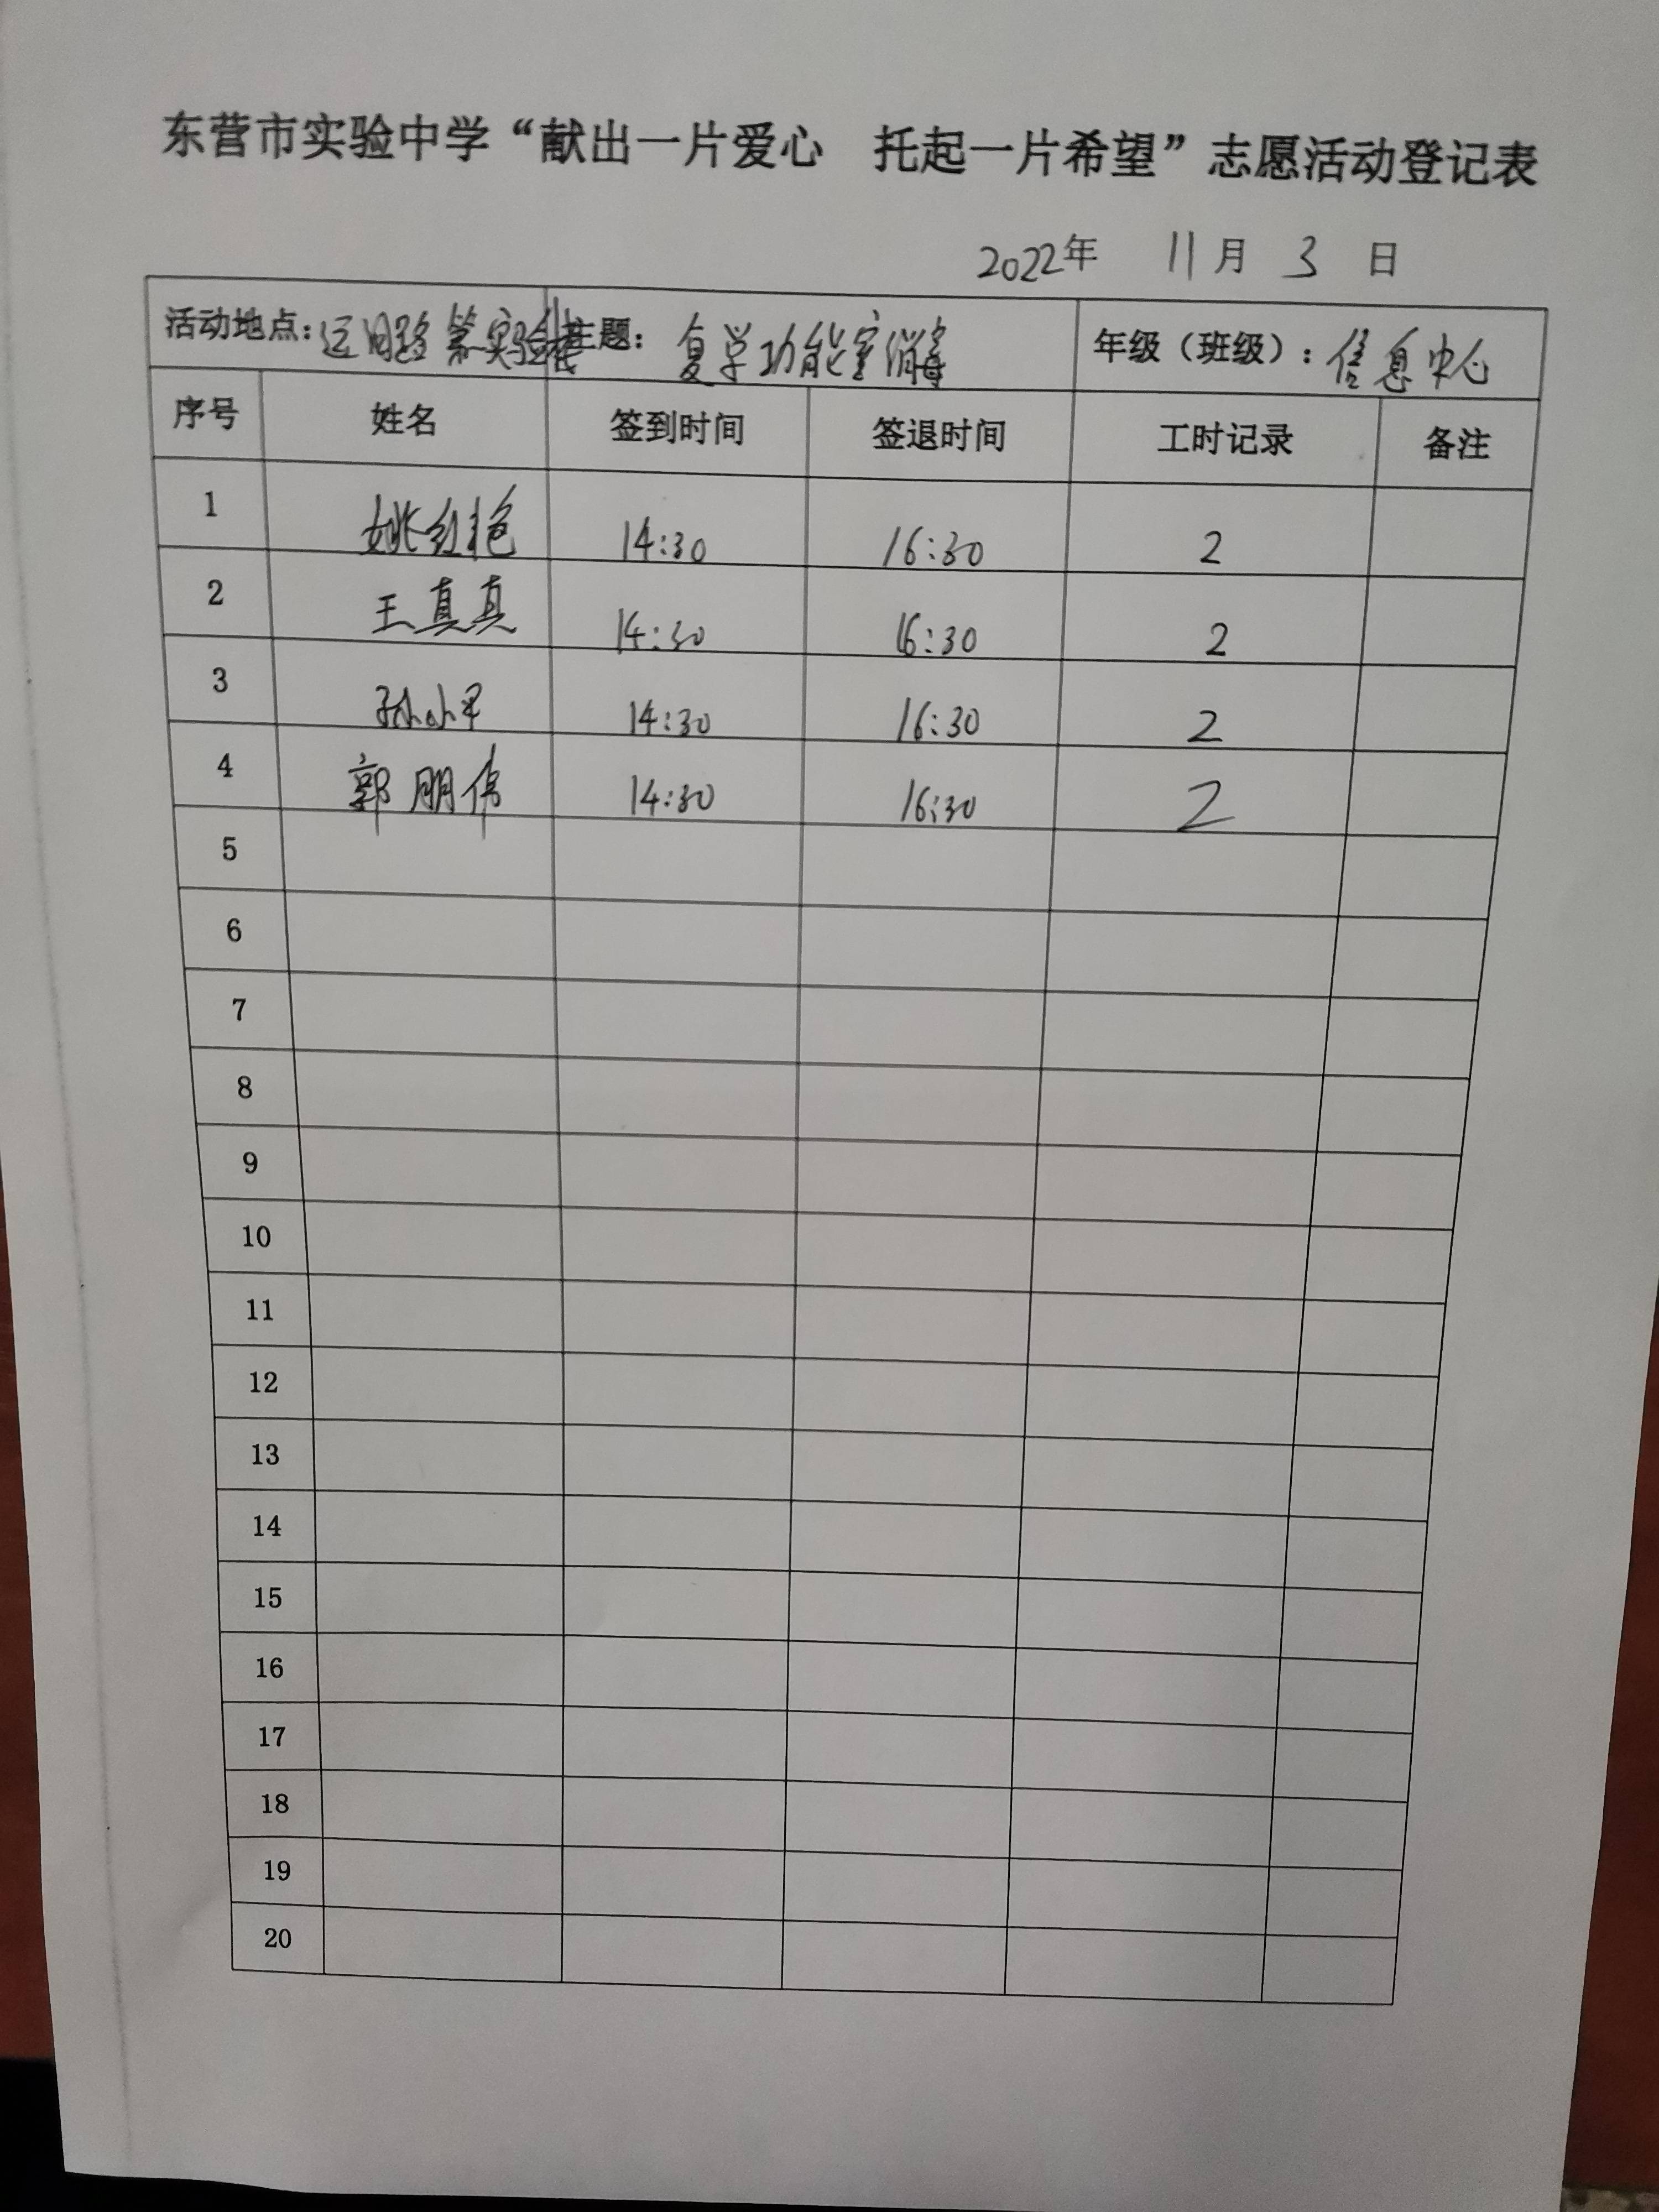 东营市实验中学“献出一片爱心 托起一片希望”志愿活动登记表
2022年 11月 3 日
活动地点: 主题: 复学功能室消毒 年级（班级）: 信息中心
序号 姓名 签到时间 签退时间 工时记录 备注
1 姚红艳 14:30 16:30 2
2 王真真 14:30 16:30 2
3 孙小军 14:30 16:30 2
4 郭朋伟 14:30 16:30 2
5
6
7
8
9
10
11
12
13
14
15
16
17
18
19
20